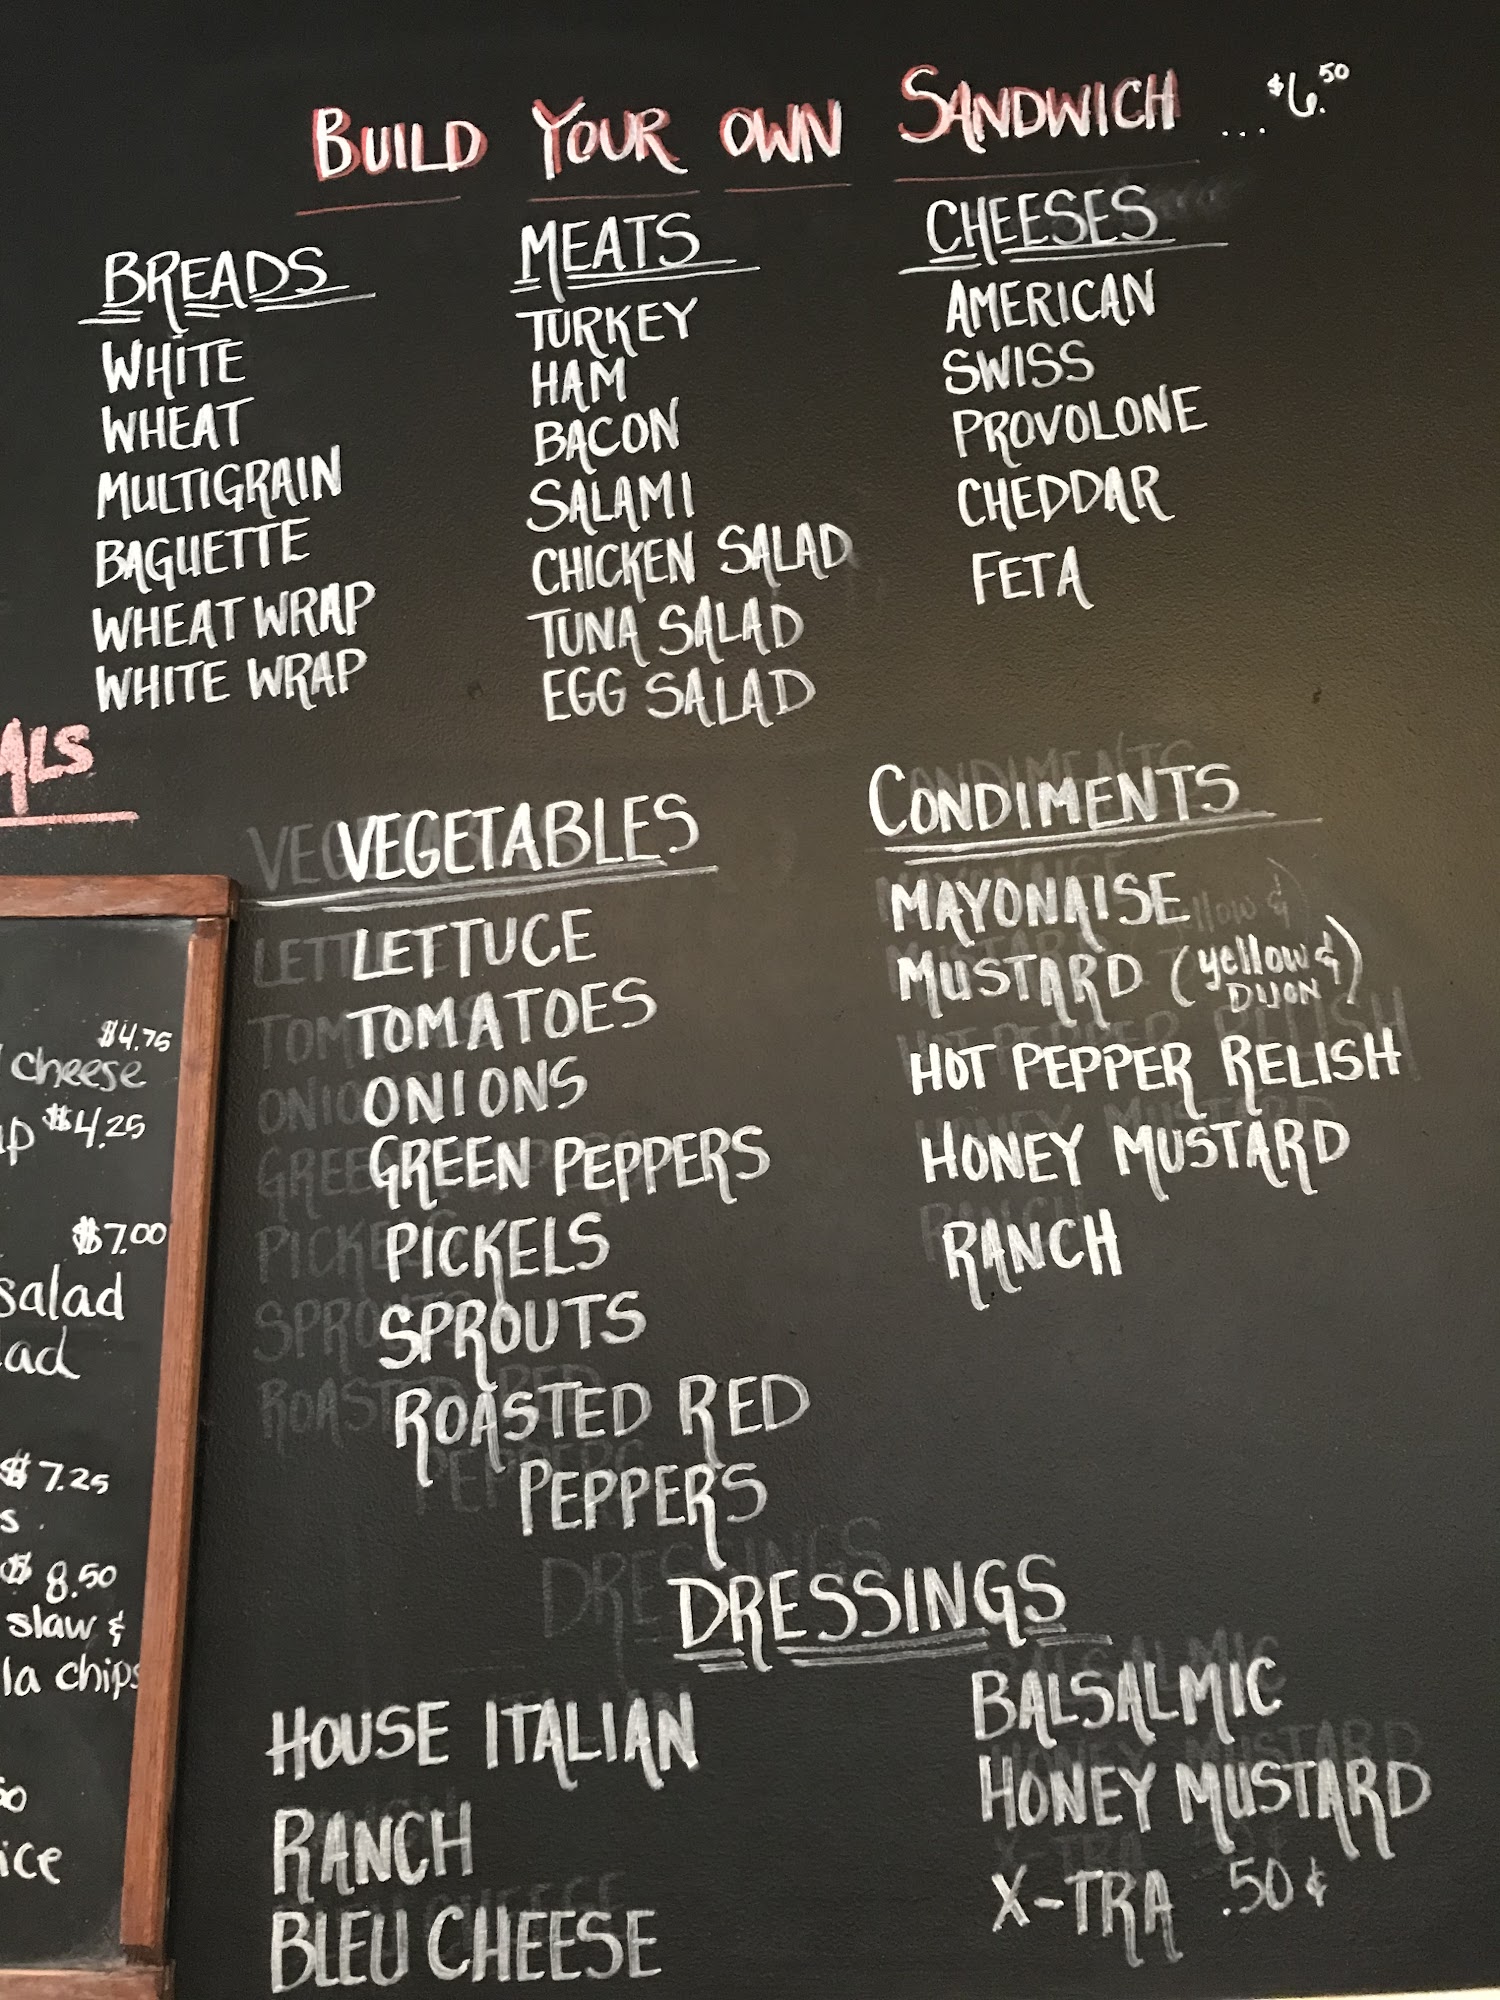 BUILD YOUR OWN SANDWICH ... $6.50
BREADS
WHITE
WHEAT
MULTIGRAIN
BAGUETTE
WHEAT WRAP
WHITE WRAP
MEATS
TURKEY
HAM
BACON
SALAMI
CHICKEN SALAD
TUNA SALAD
EGG SALAD
CHEESES
AMERICAN
SWISS
PROVOLONE
CHEDDAR
FETA
VEGETABLES
LETTUCE
TOMATOES
ONIONS
GREEN PEPPERS
PICKELS
SPROUTS
ROASTED RED
PEPPERS
CONDIMENTS
MAYONAISE
MUSTARD (yellow &
DIJON)
HOT PEPPER RELISH
HONEY MUSTARD
RANCH
DRESSINGS
HOUSE ITALIAN
RANCH
BLEU CHEESE
BALSALMIC
HONEY MUSTARD
X-TRA .50¢
ALS
$4.75
cheese
$4.25
$7.00
salad
$7.25
$8.50
slaw &
chips